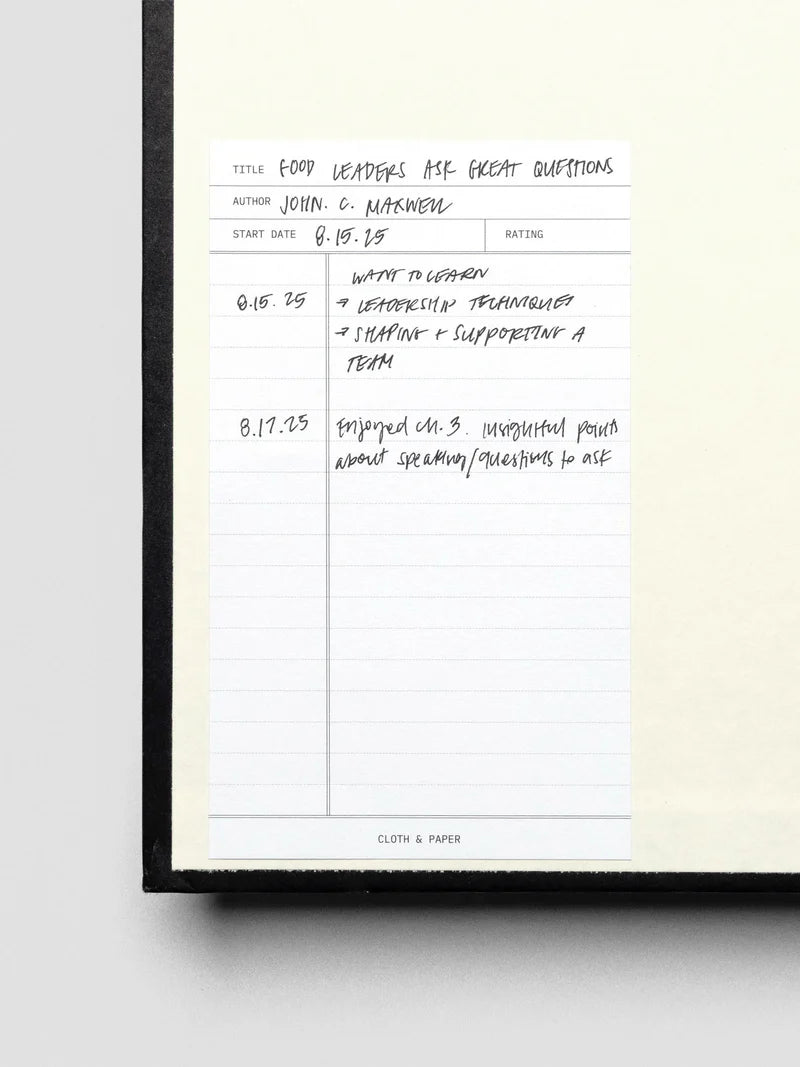 TITLE GOOD LEADERS ASK GREAT QUESTIONS
AUTHOR JOHN. C. MAXWELL
START DATE 8.15.25 RATING
WANT TO LEARN
8.15.25 → LEADERSHIP TECHNIQUES
→ SHAPING + SUPPORTING A
TEAM
8.17.25 Enjoyed ch.3. insightful points
about speaking/questions to ask
CLOTH & PAPER